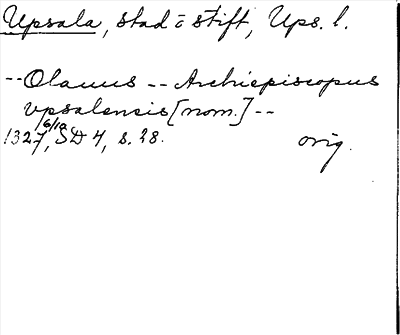 Upsala, stad o stift, Ups. l.
-- Olauus -- Archiepiscopus
vpsalensis [nom.] --
1327 6/10, SD 4, s. 28.
orig.